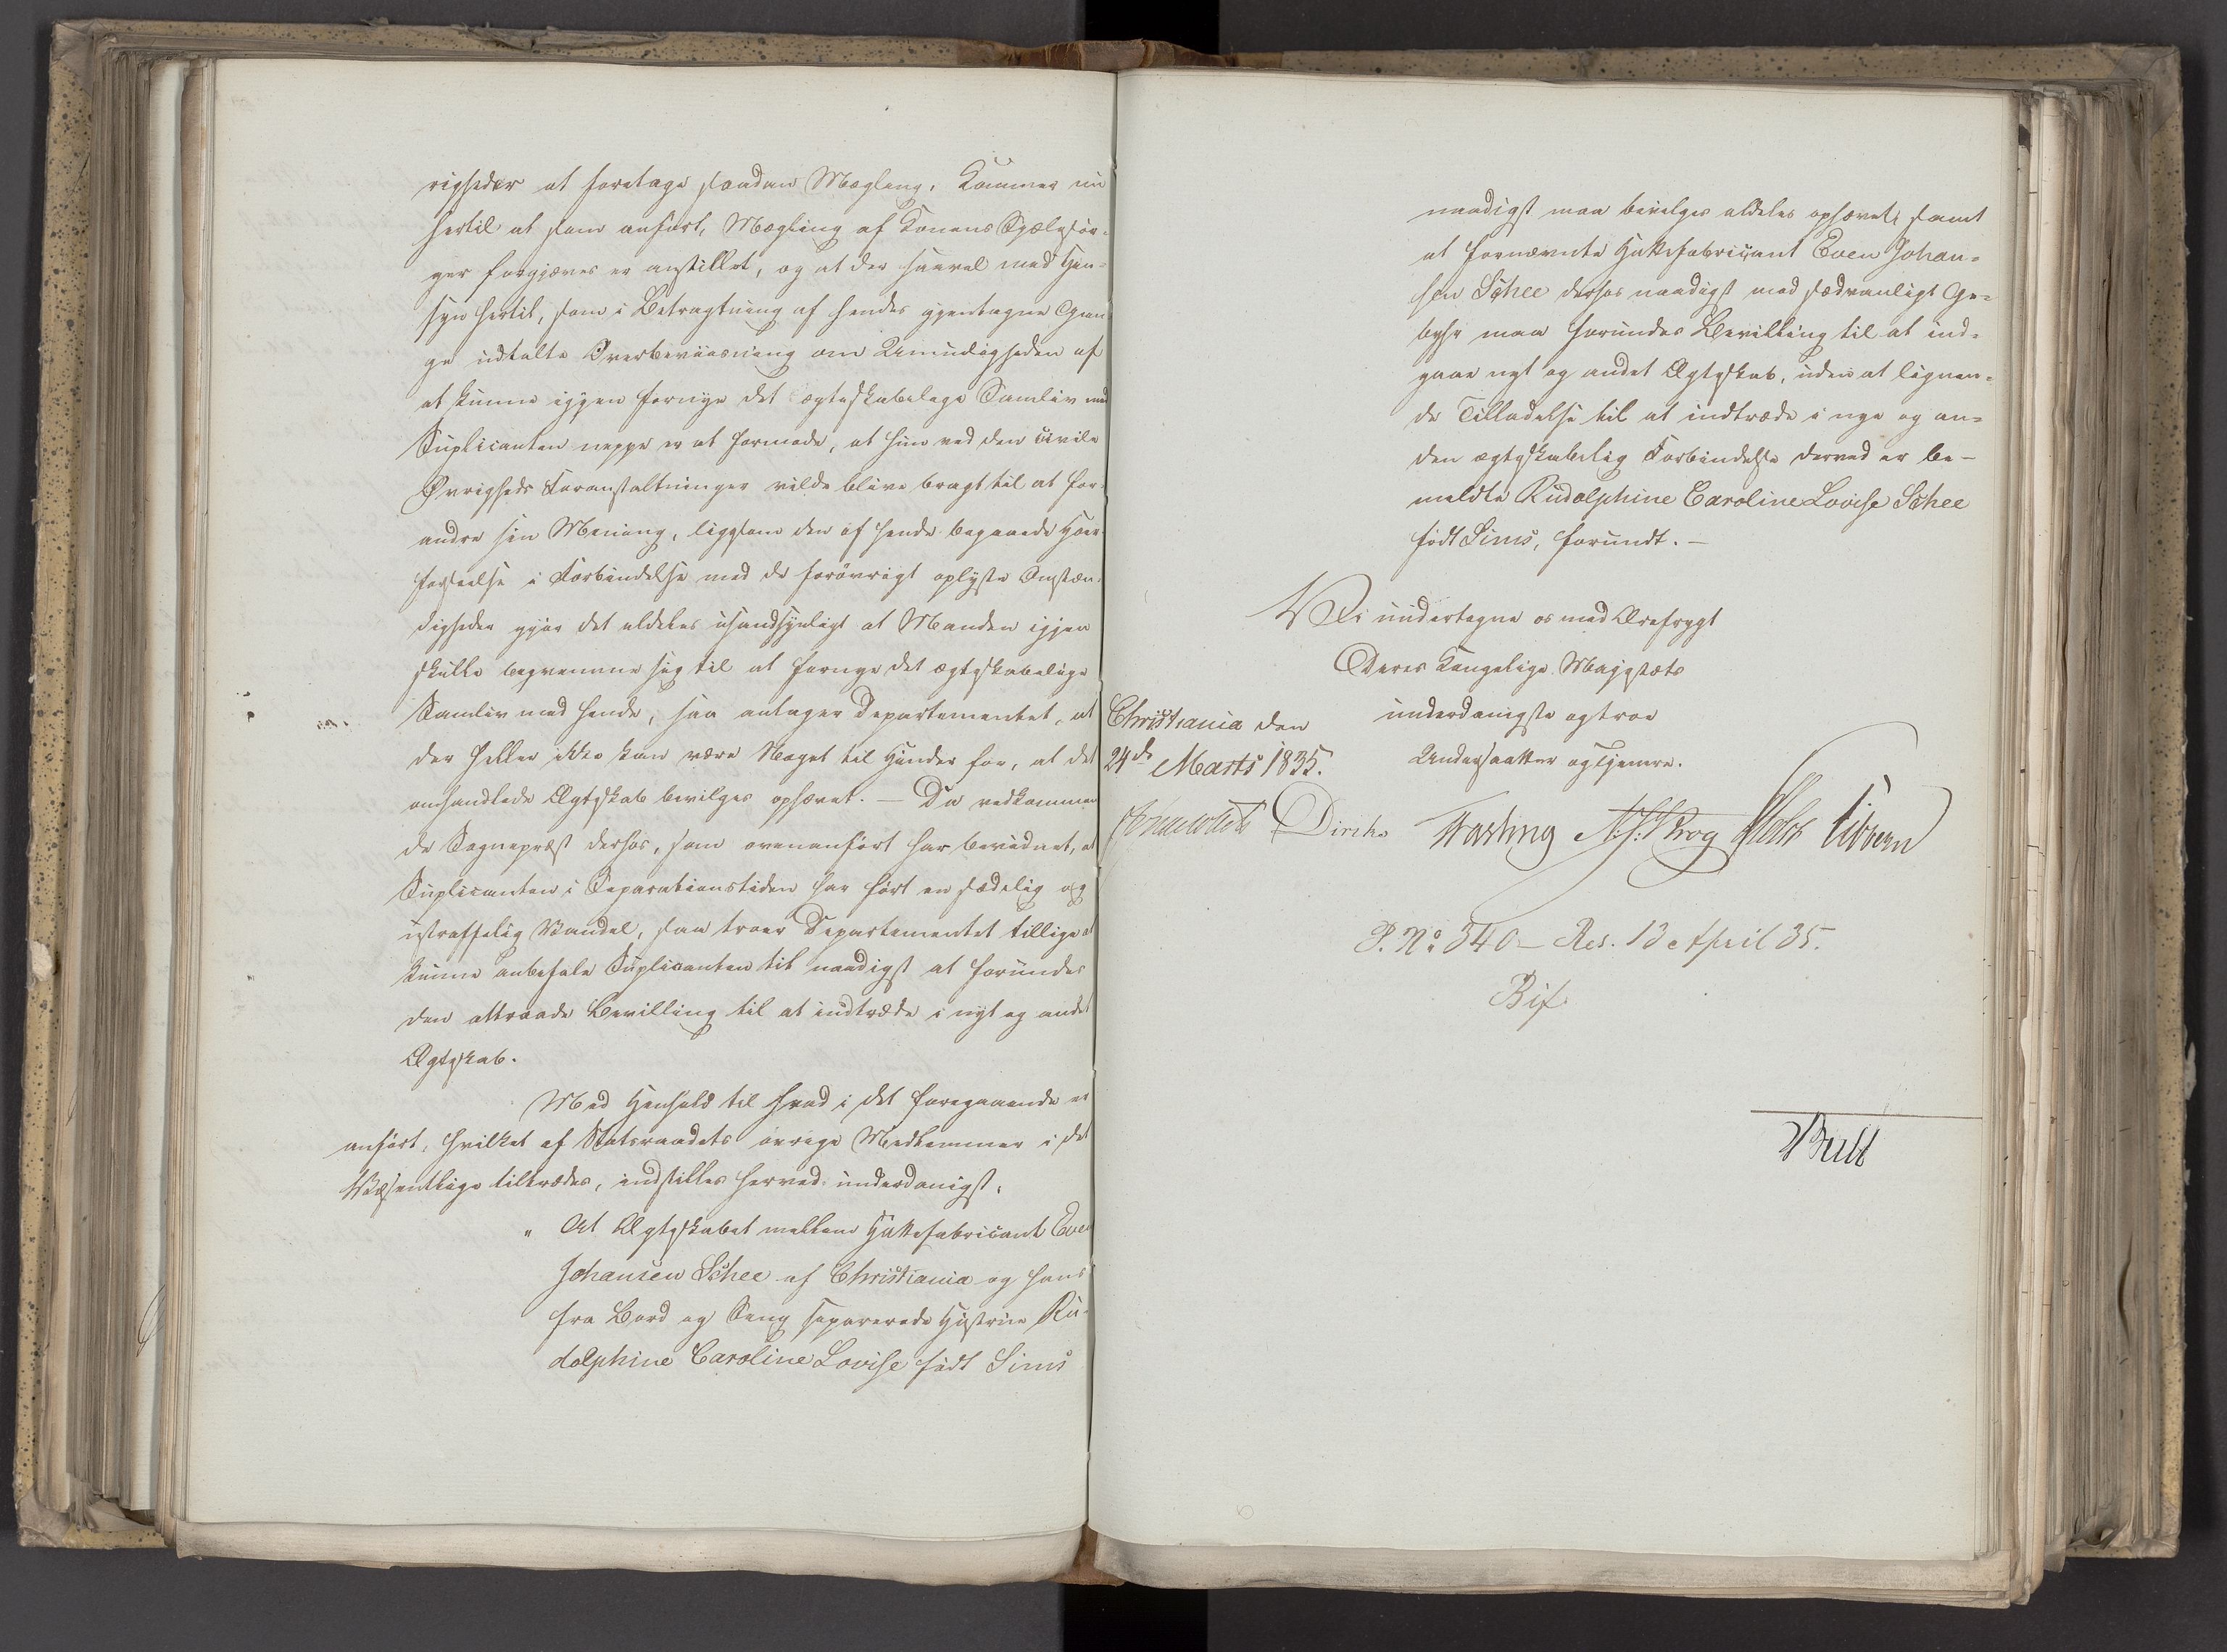 righeder at foretage saadan Mægling. Kommer nu
hertil at som anført, Mægling af Konens Sjælesør-
ger forgjæves er anstillet, og at der saavel med Hen-
syn hertil, som i Betragtning af hendes gjentagne Gan-
ge udtalte Overbeviisning om Umuligheden af
at kunne igjen fornye det ægteskabelige Samliv med
Suplicanten neppe er at formode, at hun ved den civile
Øvrigheds Foranstaltninger vilde blive bragt til at for-
andre sin Mening, ligesom den af hende begaaede Hoer-
forseelse i Forbindelse med de forøvrigt oplyste Omstæn-
digheder gjør det aldeles usandsynligt at Manden igjen
skulle beqvemme sig til at fornye det ægteskabelige
Samliv med hende, saa antager Departementet, at
der heller ikke kan være Noget til Hinder for, at det
omhandlede Ægteskab bevilges ophævet. — Da vedkommen-
de Sognepræst derhos, som ovenanført har bevidnet, at
Suplicanten i Separationstiden har ført en sædelig og
ustraffelig Vandel, saa troer Departementet tillige at
kunne anbefale Suplicanten til naadigst at forundes
den attraaede Bevilling til at indtræde i nyt og andet
Ægteskab.
Med Henhold til hvad i det foregaaende er
anført, hvilket af Statsraadets øvrige Medlemmer i det
Væsentlige tiltrædes, indstilles herved underdanigst:
" At Ægteskabet mellem Hattefabricant Even
Johansen Schee af Christiania og hans
fra Bord og Seng separerede Hustrue Ru-
dolphine Caroline Lovise født Sims
naadigst maa bevilges aldeles ophævet, samt
at fornævnte Hattefabricant Even Johan-
sen Schee derhos naadigst mod sædvanligt Ge-
byhr maa forundes Bevilling til at ind-
gaae nyt og andet Ægteskab, uden at lignen-
de Tilladelse til at indtræde i nye og an-
den ægteskabelig Forbindelse derved er be-
meldte Rudolphine Caroline Lovise Schee
født Sims, forundt. —
Vi undertegne os med Ærefrygt
Deres Kongelige Majestæts
underdanigste og troe
Undersaatter og Tjenere.
Christiania den
24de Marts 1835.
Diriks Fasting Krog Holst Vibern
P. No 340 — Res. 13 April 35.
Bif
Bull